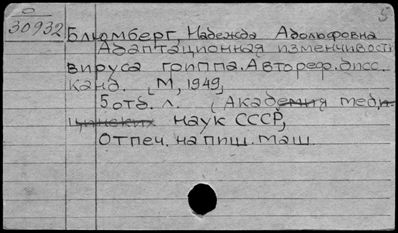 5
О
30932
Блюмберг, Надежда Адольфовна
Адаптационная изменчивость
вируса гриппа. Автореф. дисс.
канд. [М, 1949,
5 отд. л. (Академия меди
цинских наук СССР,
Отпеч. на пиш. маш.